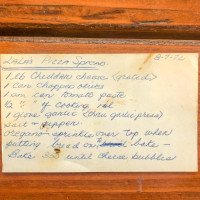 LaLa's Pizza Spread 8-7-72
1 lb Cheddar cheese (grated)
1 can chopped olives
1 sm can tomato paste
1/2 " of cooking oil
1 clove garlic (thru garlic press)
salt & pepper
oregano - sprinkle over top when
putting bread on to bake -
Bake until cheese bubbles